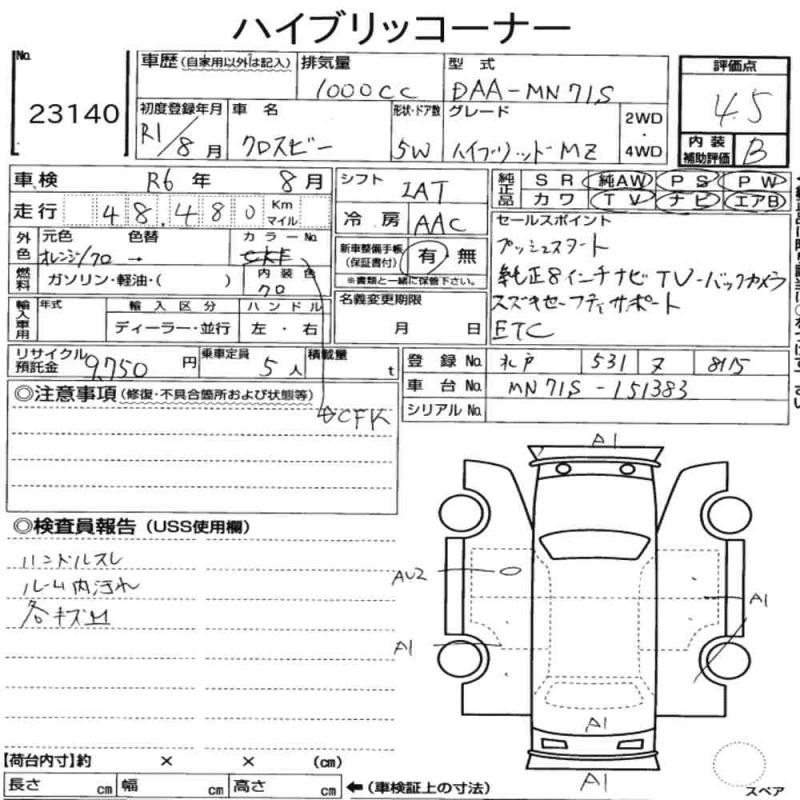 ハイブリッコーナー
No.
23140
車歴 (自家用以外は記入)
排気量
1000cc
型式
DAA-MN71S
評価点
4.5
内装補助評価
B
初度登録年月
R1/8月
車名
クロスビー
形状・ドア数
5W
グレード
ハイブリッドMZ
2WD
・
4WD
車検 R6年 8月
走行 48,480 Km マイル
シフト
IAT
冷房
AAC
純正品
SR 純AW PS PW
カワ TV ナビ エアB
外色
元色
オレンジ/クロ
色替
→
カラーNo.
燃料
ガソリン・軽油・( )
内装色
クロ
新車整備手帳
(保証書付)
有・無
※書類と一緒に保管下さい。
セールスポイント
プッシュスタート
純正8インチナビTV-バックカメラ
スズキセーフティサポート
ETC
輸入車用
年式
輸入区分
ディーラー・並行
ハンドル
左・右
名義変更期限
月 日
リサイクル預託金
9,750円
乗車定員
5人
積載量
t
登録No. 札戸 531 ヌ 8175
車台No. MN71S-151383
シリアルNo.
◎注意事項 (修復・不具合箇所および状態等)
CFK
◎検査員報告 (USS使用欄)
ハンドルスレ
ルーム内汚れ
各キズ凹
A1
AU2
A1
A1
A1
A1
【荷台内寸】約 × × (cm)
長さ cm 幅 cm 高さ cm ←(車検証上の寸法)
スペア